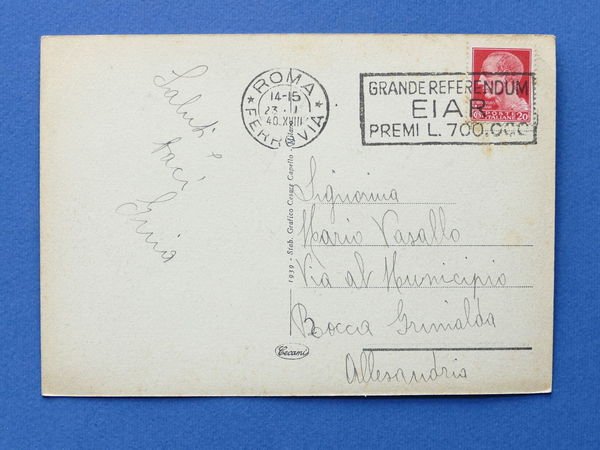 Saluti e
baci
ROMA
FERROVIA
14-15
23 II
40.XVIII
GRANDE REFERENDUM
EIAR
PREMI L. 700.000
POSTE
ITALIANE
20
1939 - Stab. Grafico Cesare Capello - Milano
Cecami
Signorina
Mario Vasallo
Via al Municipio
Rocca Grimalda
Allesandria